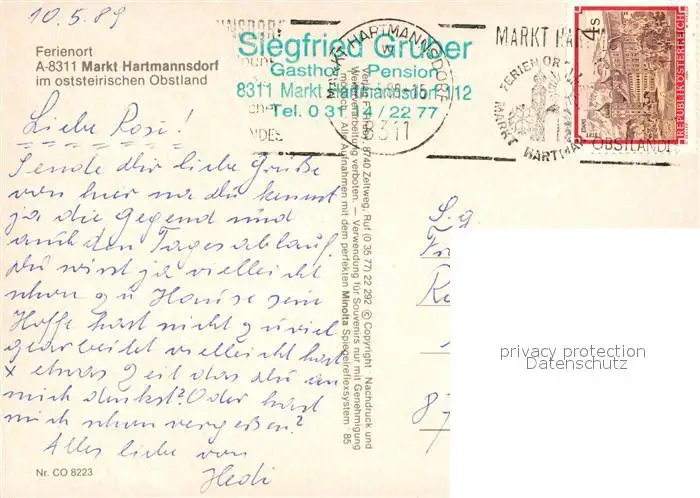 10.5.89
Ferienort
A-8311 Markt Hartmannsdorf
im oststeirischen Obstland
Siegfried Gruber
Gasthof - Pension
8311 Markt Hartmannsdorf 112
Tel. 0 31 14 / 22 77
MARKT HARTMANNSDORF
8311
MARKT HAR
FERIENORT
MARKT HARTMA
OBSTLAND
4 S
REPUBLIK ÖSTERREICH
STIFT
Liebe Rosi!
Sende dir liebe Grüße
von hier na du kennst
ja die Gegend und
auch den Tagesablauf.
Du wirst ja vielleicht
schon zu Hause sein
Hoffe hast nicht zuviel
gearbeitet vielleicht hast
x etwas Zeit das du an
mich denkst? Oder hast
mich schon vergeßen?
Alles liebe von
Hedi
Nr. CO 8223
8740 Zeltweg, Ruf (0 35 77) 22 292 © Copyright · Nachdruck und
Weiterverarbeitung verboten. — Verwendung für Souvenirs nur mit Genehmigung
Alle Aufnahmen mit dem perfekten Minolta Spiegelreflexsystem · 85
S. g.
87
privacy protection
Datenschutz